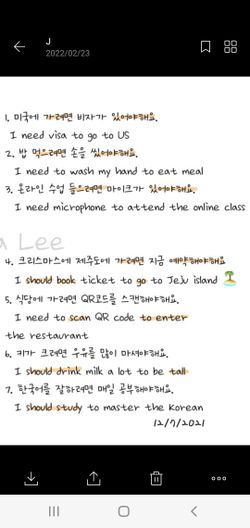 J
2022/02/23
1. 미국에 가려면 비자가 있어야해요.
I need visa to go to US
2. 밥 먹으려면 손을 씻어야해요.
I need to wash my hand to eat meal
3. 온라인 수업 들으려면 마이크가 있어야해요.
I need microphone to attend the online class
a Lee
4. 크리스마스에 제주도에 가려면 지금 예약해야해요
I should book ticket to go to Jeju island 🏝️
5. 식당에 가려면 QR코드를 스캔해야해요.
I need to scan QR code to enter
the restaurant
6. 키가 크려면 우유를 많이 마셔야해요.
I should drink milk a lot to be tall
7. 한국어를 잘하려면 매일 공부해야해요.
I should study to master the Korean
12/7/2021